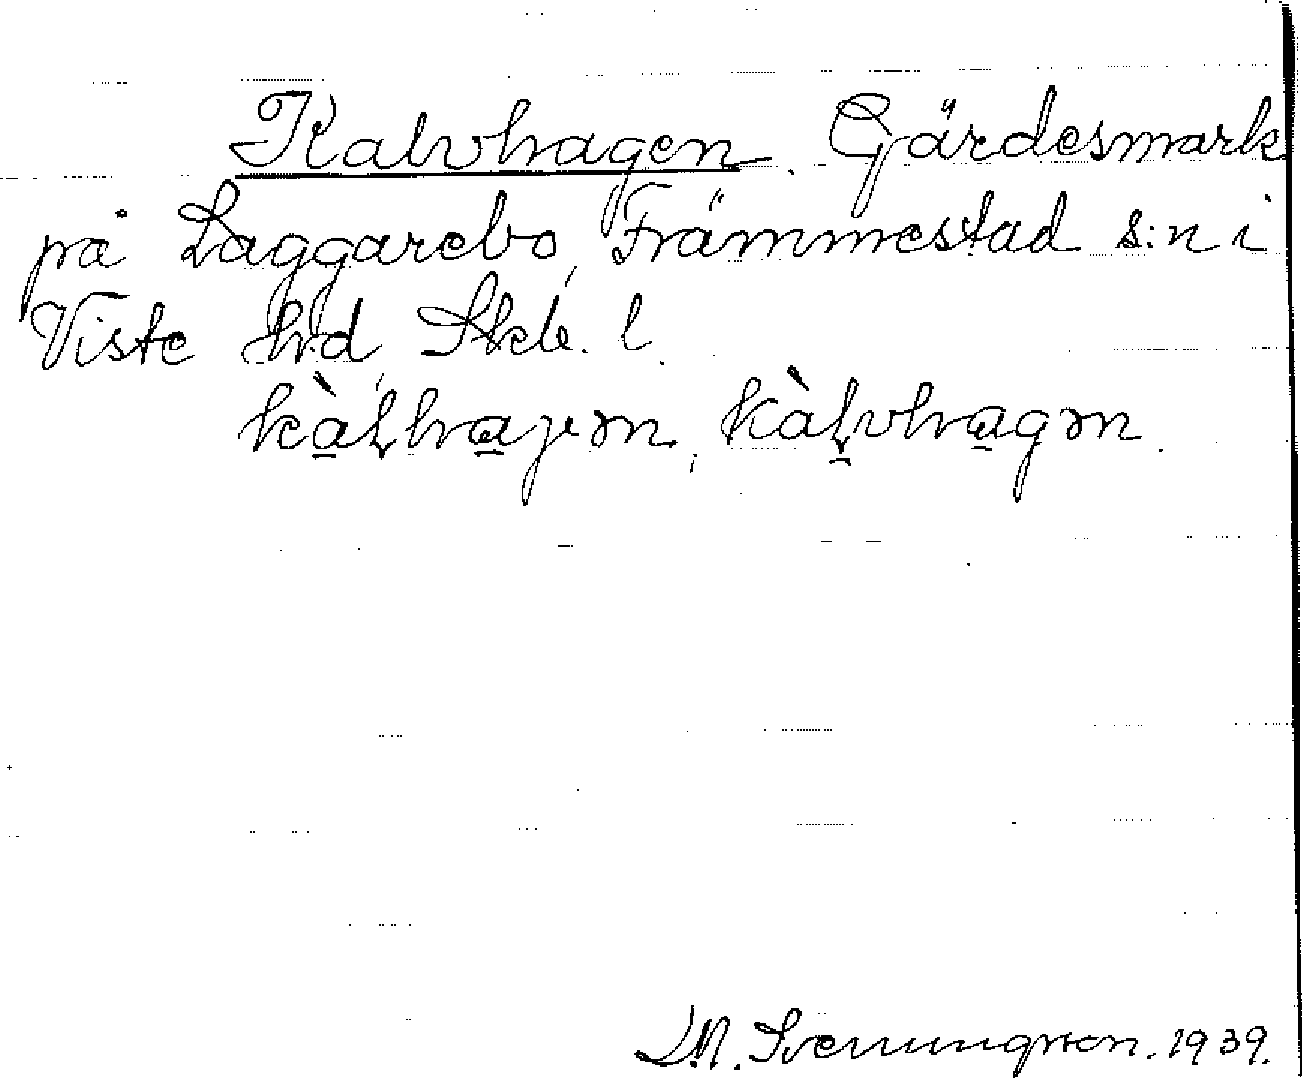 Kalvhagen. Gärdesmark
på Laggarebo, Främmestad s:n i
Viste hd, Skb. l.
kàl̥hajən, kàl̥vhagən.
L.M. Svenungsson. 1939.